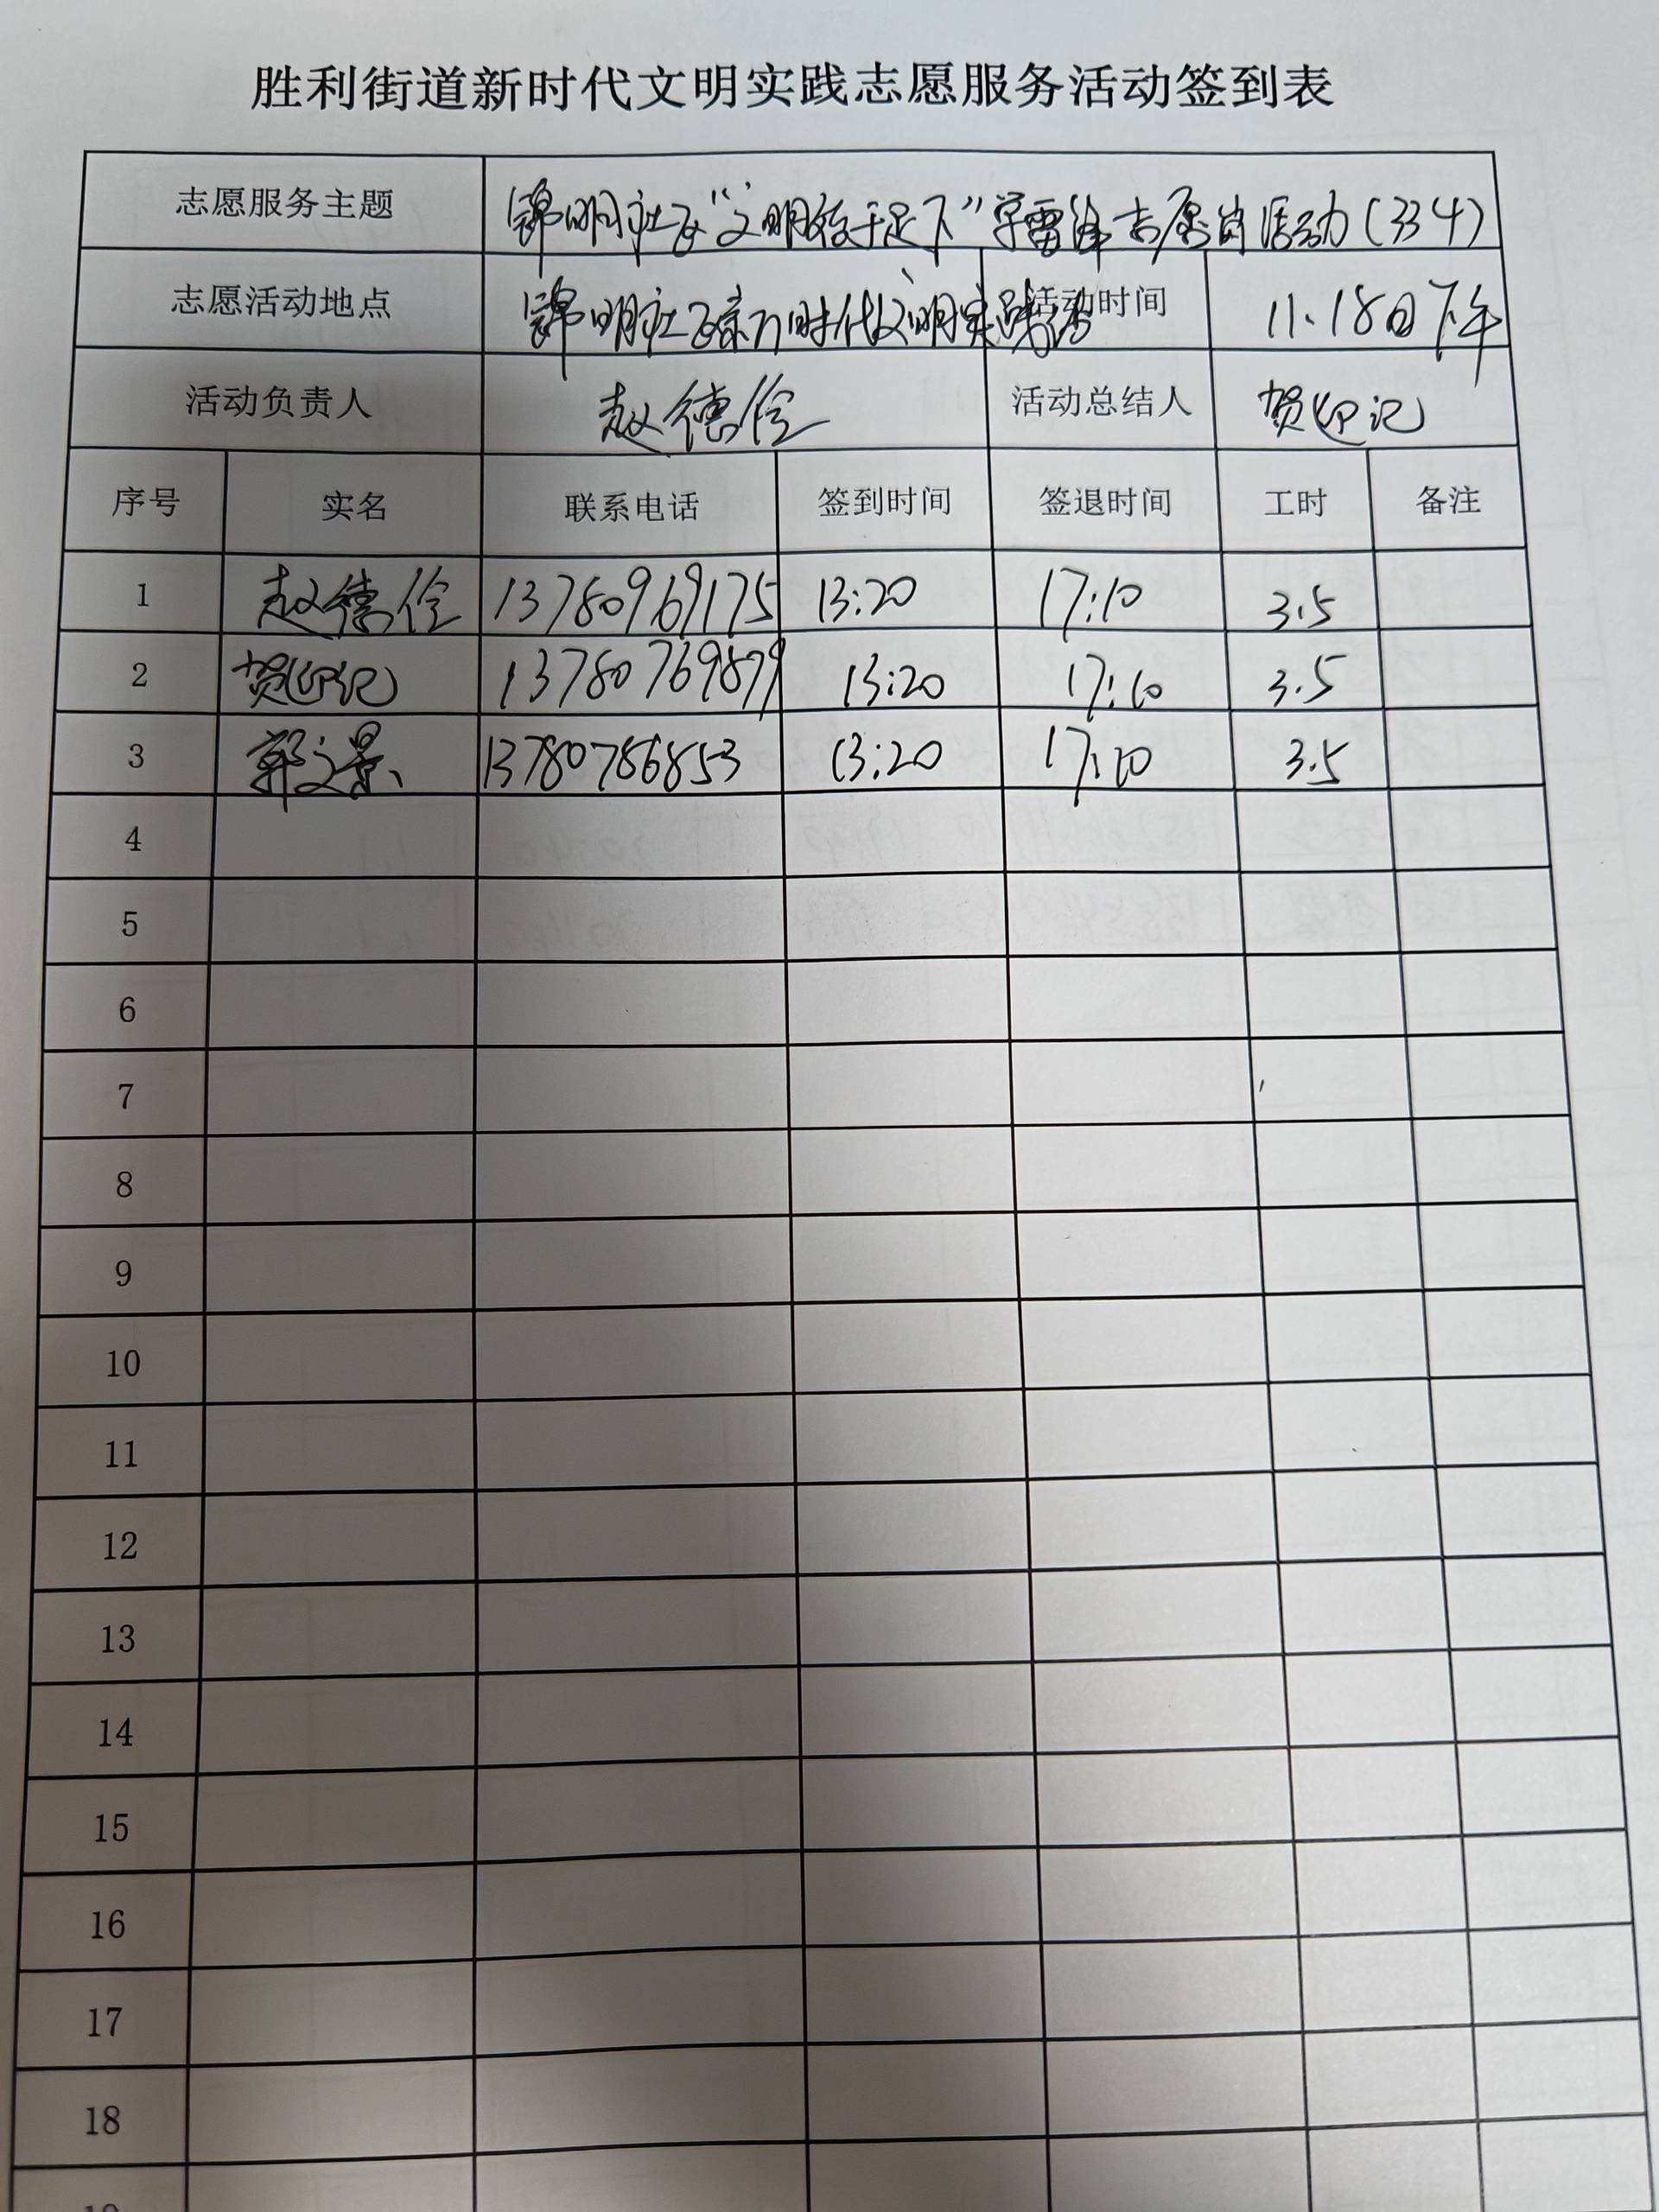 胜利街道新时代文明实践志愿服务活动签到表
志愿服务主题 锦明社区“文明始于足下”学雷锋志愿岗活动(334)
志愿活动地点 锦明社区新时代文明实践站 活动时间 11.18日下午
活动负责人 赵德伦 活动总结人 贺迎记
序号 实名 联系电话 签到时间 签退时间 工时 备注
1 赵德伦 13780969175 13:20 17:10 3.5
2 贺迎记 13780769879 13:20 17:10 3.5
3 郭文景 13780786853 13:20 17:10 3.5
4
5
6
7
8
9
10
11
12
13
14
15
16
17
18
19